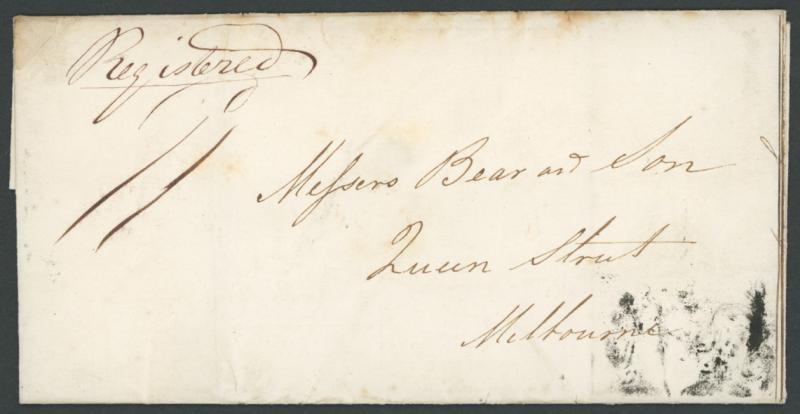 Registered
11
Messers Bear and Son
Queen Street
Melbourne